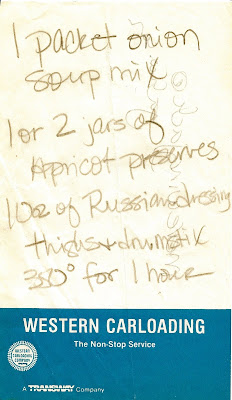 1 packet onion
soup mix
1 or 2 jars of
Apricot preserves
10oz of Russian dressing
thighs + drumstik
350° for 1 hour
WESTERN CARLOADING
The Non-Stop Service
WESTERN
CARLOADING
COMPANY
A TRANSWAY Company